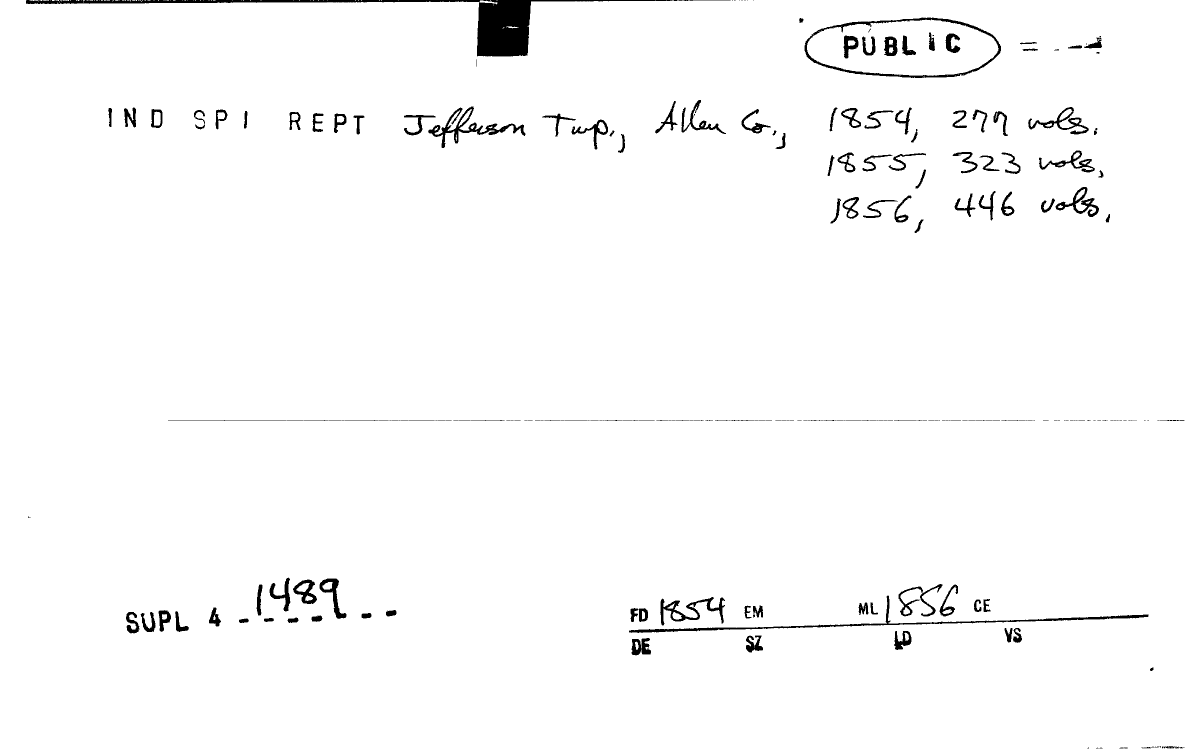 PUBLIC =
IND SPI REPT Jefferson Twp., Allen Co., 1854, 277 vols.
1855, 323 vols.
1856, 446 vols.
SUPL 4 1489
FD 1854 EM ML 1856 CE
DE SZ LD VS